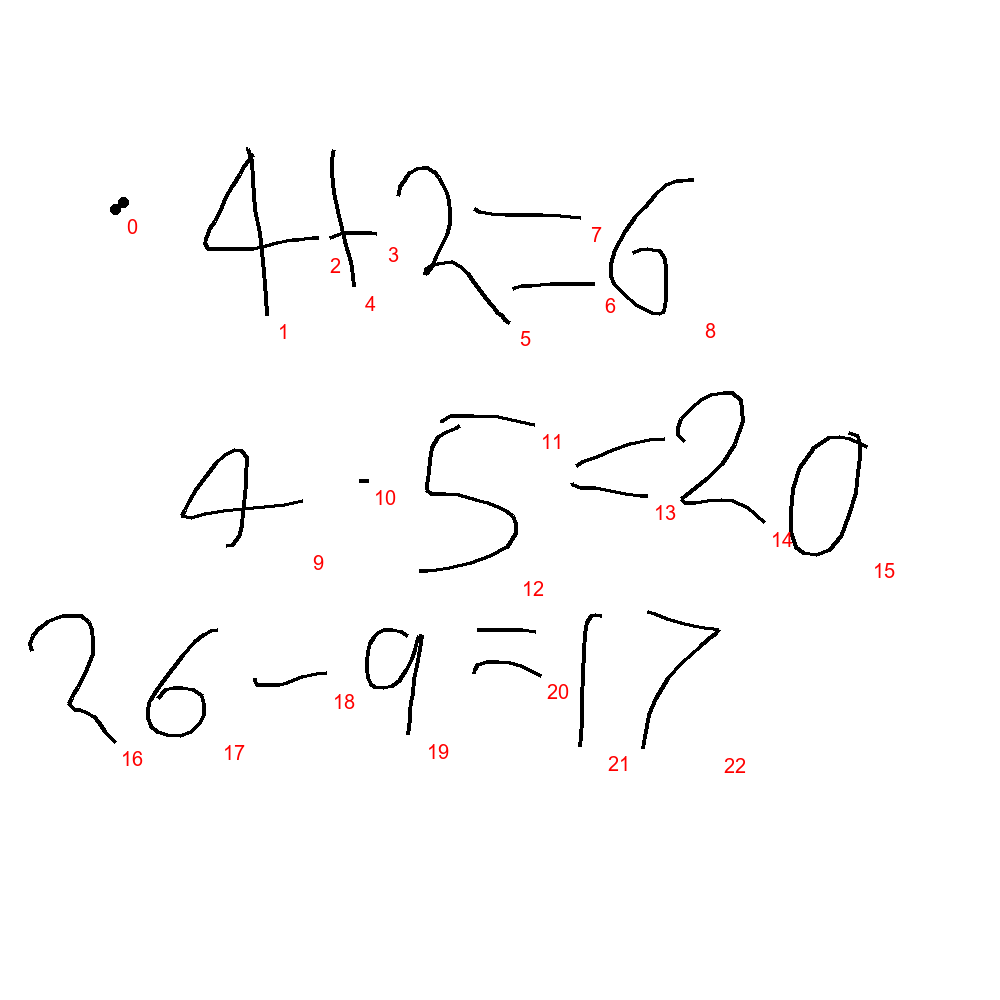 4+2=6
0 1 2 3 4 5 6 7 8
4·5=20
9 10 11 12 13 14 15
26-9=17
16 17 18 19 20 21 22